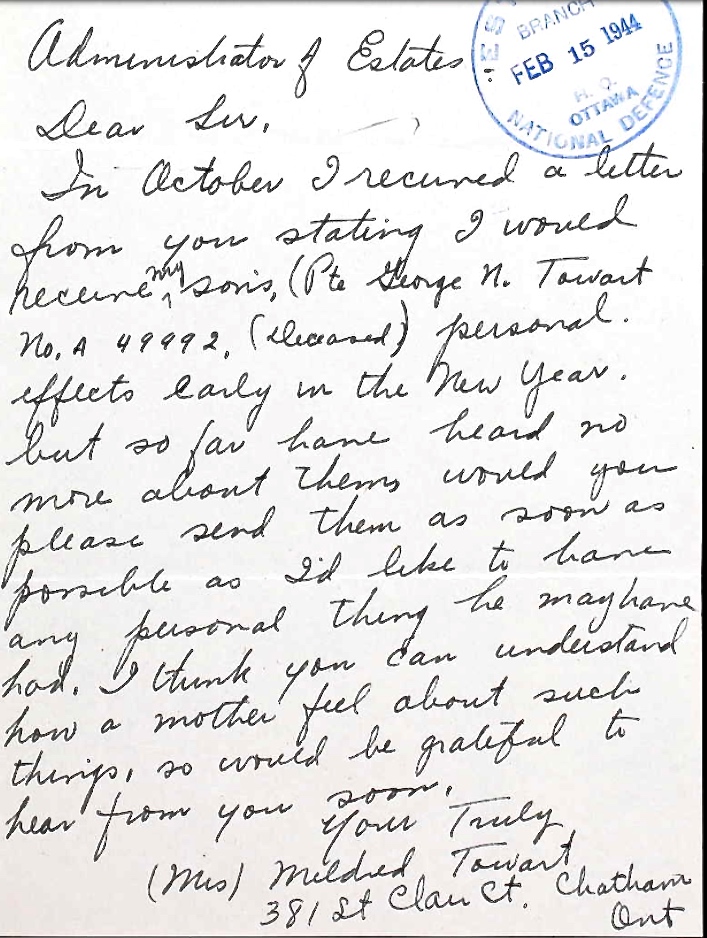 Administrator of Estates
ESTATES
BRANCH
FEB 15 1944
H. Q.
OTTAWA
NATIONAL DEFENCE
Dear Sir,
In October I received a letter
from you stating I would
receive my son's, (Pte George N. Towart
No. A 49992, (deceased) personal.
effects early in the New Year.
but so far have heard no
more about them, would you
please send them as soon as
possible as I'd like to have
any personal thing he may have
had. I think you can understand
how a mother feel about such
things, so would be grateful to
hear from you soon.
Your Truly
(Mrs) Mildred Towart
381 St Clair Ct. Chatham
Ont